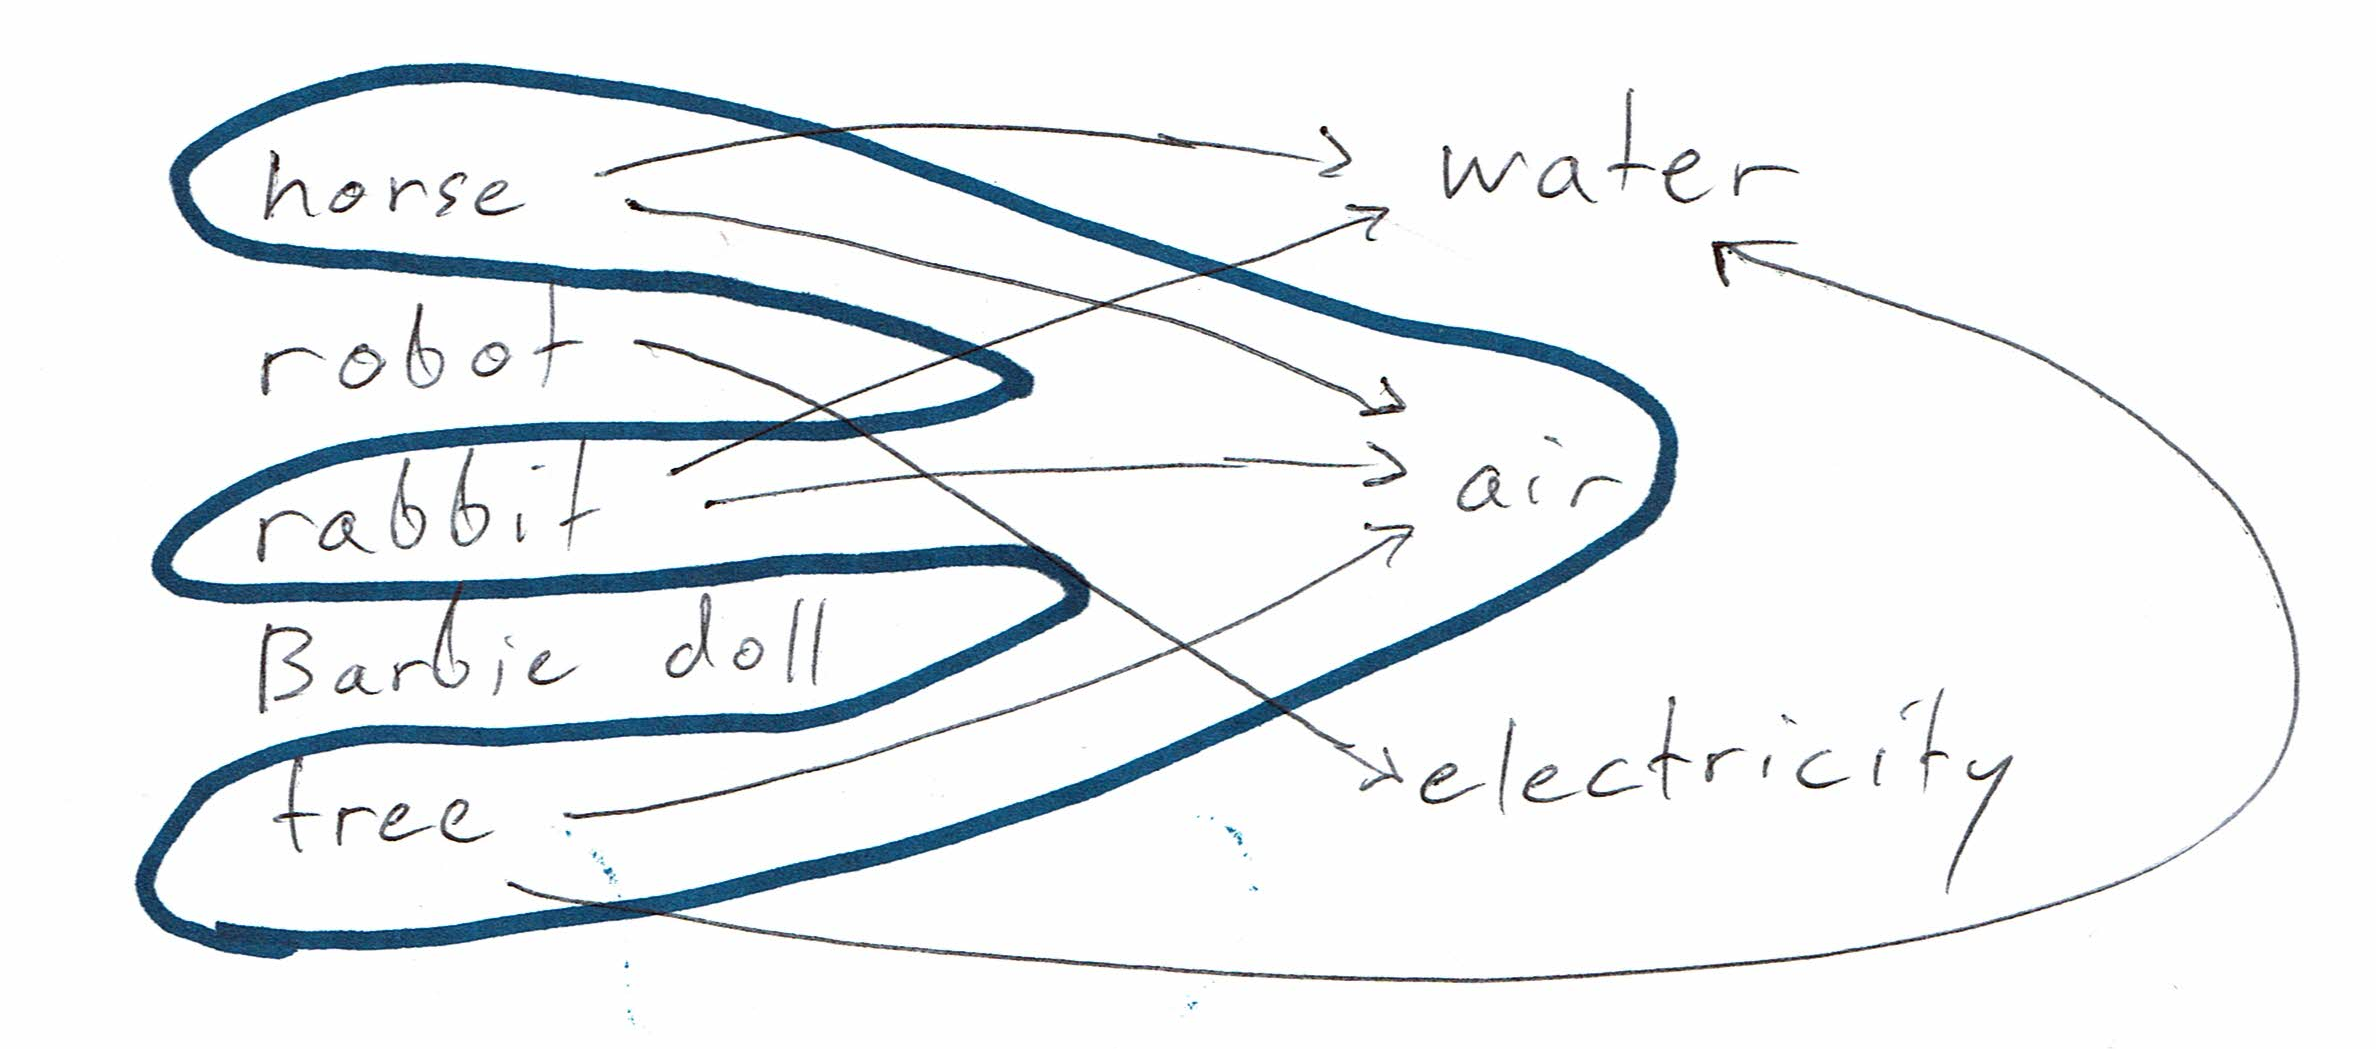 horse
robot
rabbit
Barbie doll
tree
water
air
electricity